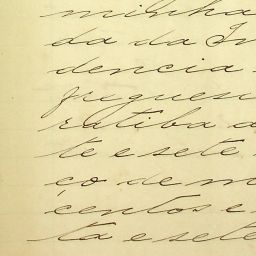 minha
da da In
dencia
freguesi
ratiba a
te e sete
ço de m
centos e
ta e sete